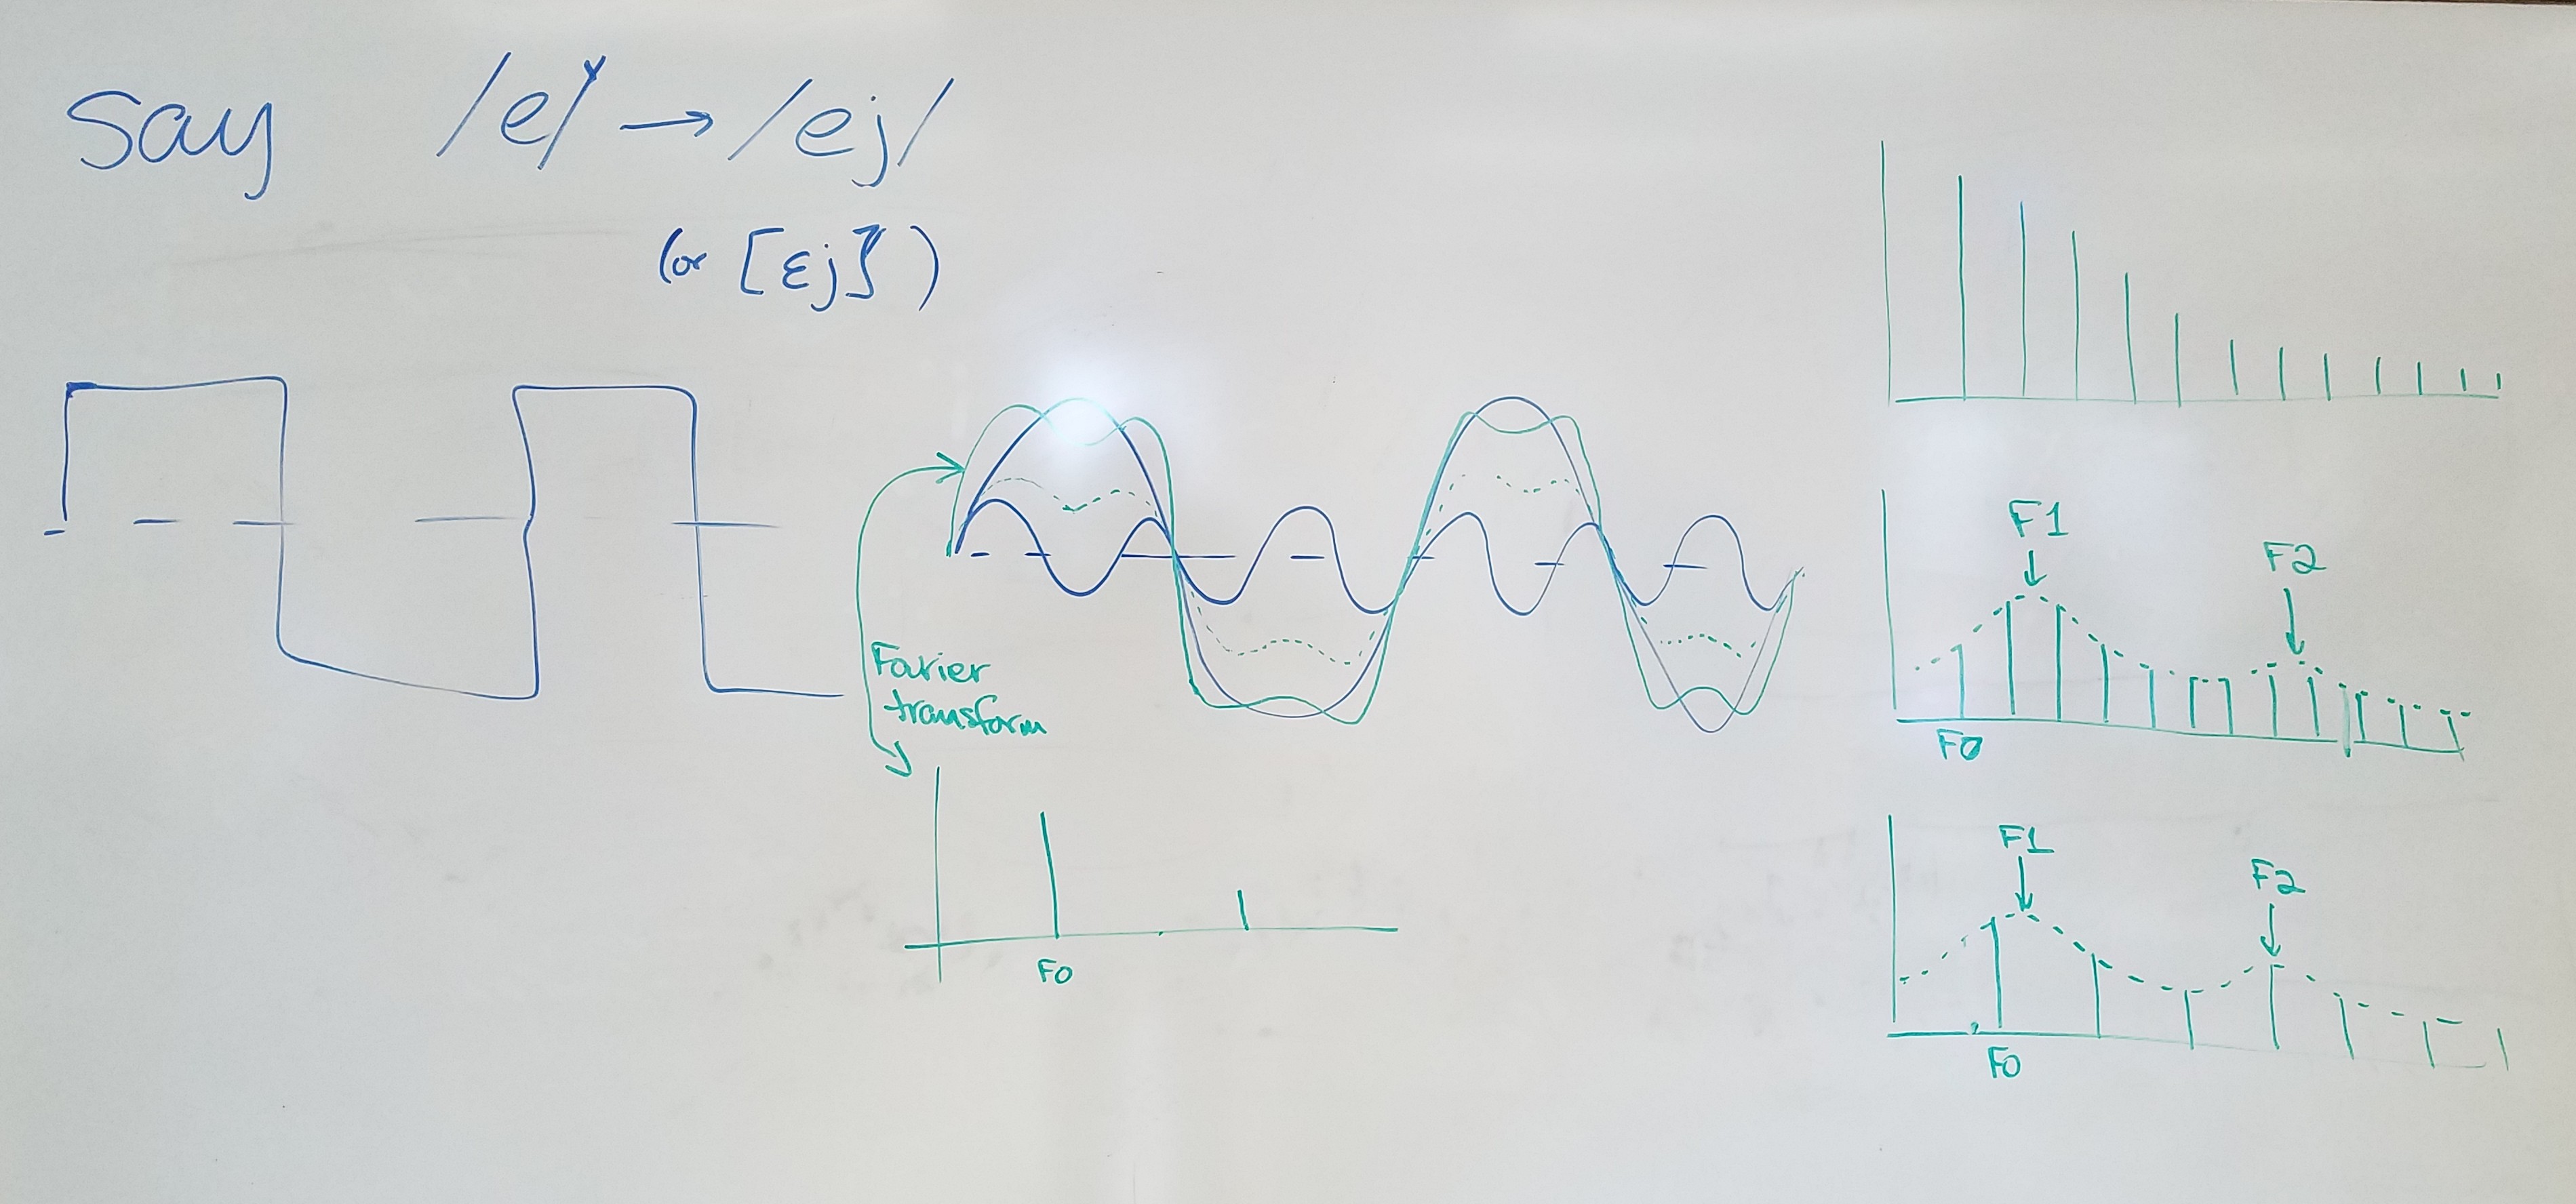 say /e/ → /ej/
(or [ɛj])
Fourier
transform
F0
F1
F2
F0
F1
F2
F0